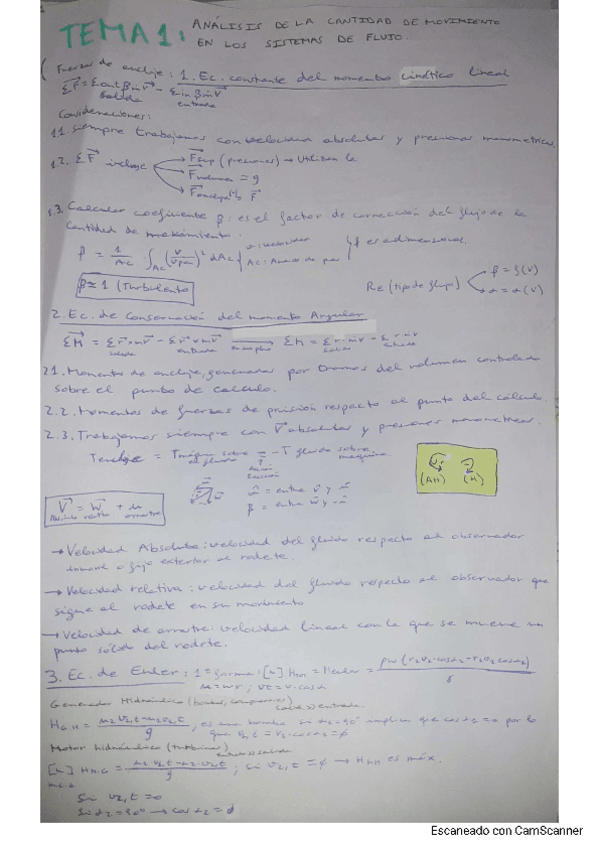 TEMA 1: ANÁLISIS DE LA CANTIDAD DE MOVIMIENTO
EN LOS SISTEMAS DE FLUJO.
Fuerzas de anclaje: 1. Ec. constante del momento cinético lineal
ΣF = Σout βṁV - Σin βṁV
salida entrada
Consideraciones:
1.1. Siempre trabajamos con velocidad absolutas y presiones manométricas.
1.2. ΣF incluye
Fsup (presiones) → Utilizan la
Fvolumen = g
Fanclaje
1.3. Calcular coeficiente β: es el factor de corrección del flujo de la
cantidad de movimiento.
β = 1/Ac ∫Ac (V/Vpm)² dAc
β es adimensional
β ≈ 1 (Turbulento)
Re (tipo de flujo)
β = β(V)
α = α(V)
2. Ec. de Conservación del momento Angular
ΣM = Σ r·ṁV - Σ r·ṁV → ΣM = Σ r·ṁV - Σ r·ṁV
salida entrada salida entrada
2.1. Momentos de anclaje, generados por tramos del volumen controlado
sobre el punto de cálculo.
2.2. Momentos de fuerzas de presión respecto al punto del cálculo.
2.3. Trabajamos siempre con V absolutas y presiones manométricas.
Tanclaje = Tmáquina sobre el fluido = -T fluido sobre máquina
Acción
Reacción
(AH) (H)
V = W + u
Absoluta relativa arrastre
α = entre V y u
β = entre W y -u
→ Velocidad Absoluta: velocidad del fluido respecto al observador
inmóvil o fijo exterior al rodete.
→ Velocidad relativa: velocidad del fluido respecto al observador que
sigue al rodete en su movimiento
→ Velocidad de arrastre: velocidad lineal con la que se mueve un
punto sólido del rodete.
3. Ec. de Euler: 1ª forma: [m] Hm = Heuler = ρw (r2V2·cosα2 - r1V1 cosα1) / γ
u = wr; Vt = V·cosα
Generador Hidráulico (bombas, compresores)
salida > entrada
HG.H = u2 V2,t - u1 V1,t / g, es una bomba si α1 = 90° implica que cosα1 = 0 por lo
que V1,t = V1·cosα1 = ∅
Motor hidráulico (turbinas)
entrada > salida
[m] HM.H = u1 V1,t - u2·V2,t / g; Si V2,t = ∅ → HMH es máx.
Si V2,t = 0
Si α2 = 90° → cosα2 = ∅
Escaneado con CamScanner